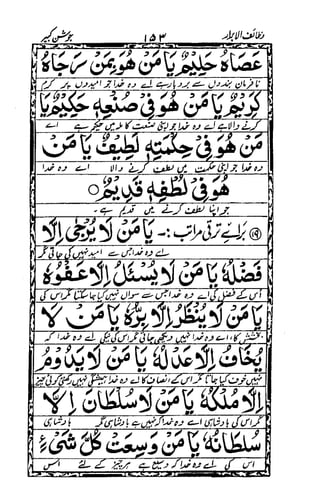 وظائف الابرار ١٥٣ جوشن کبیر
عَصَاهُ حَلِيْمٌ يَا مَنْ هُوَ بِمَنْ رَجَاهُ
نافرمان بندوں سے بردبار ہے اے وہ خدا جو امیدوں پر کرم
كَرِيْمٌ يَا مَنْ هُوَ فِيْ صُنْعِهٖ حَكِيْمٌ يَا
کرنے والا ہے اے وہ خدا جو اپنی صنعت کاملہ میں حکیم ہے اے
مَنْ هُوَ فِيْ حِكْمَتِهٖ لَطِيْفٌ يَا مَنْ
وہ خدا جو اپنی حکمت میں لطف کرنے والا ہے اے وہ خدا
هُوَ فِيْ لُطْفِهٖ قَدِيْمٌ ○
جو اپنا لطف کرنے میں قدیم ہے۔
(١٩) برائے ترقی مراتب :- يَا مَنْ لَا يُرْجٰى اِلَّا
اے وہ خدا جس سے امید نہیں کی جاتی مگر
فَضْلُهٗ يَا مَنْ لَا يُسْئَلُ اِلَّا عَفْوُهٗ
اس کے فضل کی اے وہ خدا جس سے سوال نہیں کیا جا سکتا مگر اس کی
يَا مَنْ لَا يُنْظَرُ اِلَّا بِرُّهٗ يَا مَنْ لَا
بخشش کا، اے وہ خدا نہیں دیکھی جاتی مگر اس کی نیکی اے وہ خدا کہ
يُخَافُ اِلَّا عَدْلُهٗ يَا مَنْ لَا يَدُوْمُ
نہیں خوف کیا جاتا مگر اس کے انصاف کا اے وہ خدا ہمیشگی نہیں رکھتی کوئی چیز
اِلَّا مُلْكُهٗ يَا مَنْ لَا سُلْطَانَ اِلَّا
مگر اس کی بادشاہی اے وہ خدا کہ نہیں ہے بادشاہی مگر
سُلْطَانُهٗ يَا مَنْ وَسِعَتْ كُلَّ شَيْءٍ
اس کی اے وہ خدا کہ وسیع ہے ہر چیز کے لئے اس